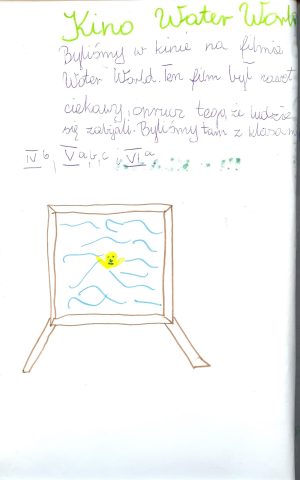 Kino Water World
Byliśmy w kinie na filmie
Water World. Ten film był nawet
ciekawy, oprucz tego, że ludzie
się zabijali. Byliśmy tam z klasami
IV b, V a, b, c, VI a